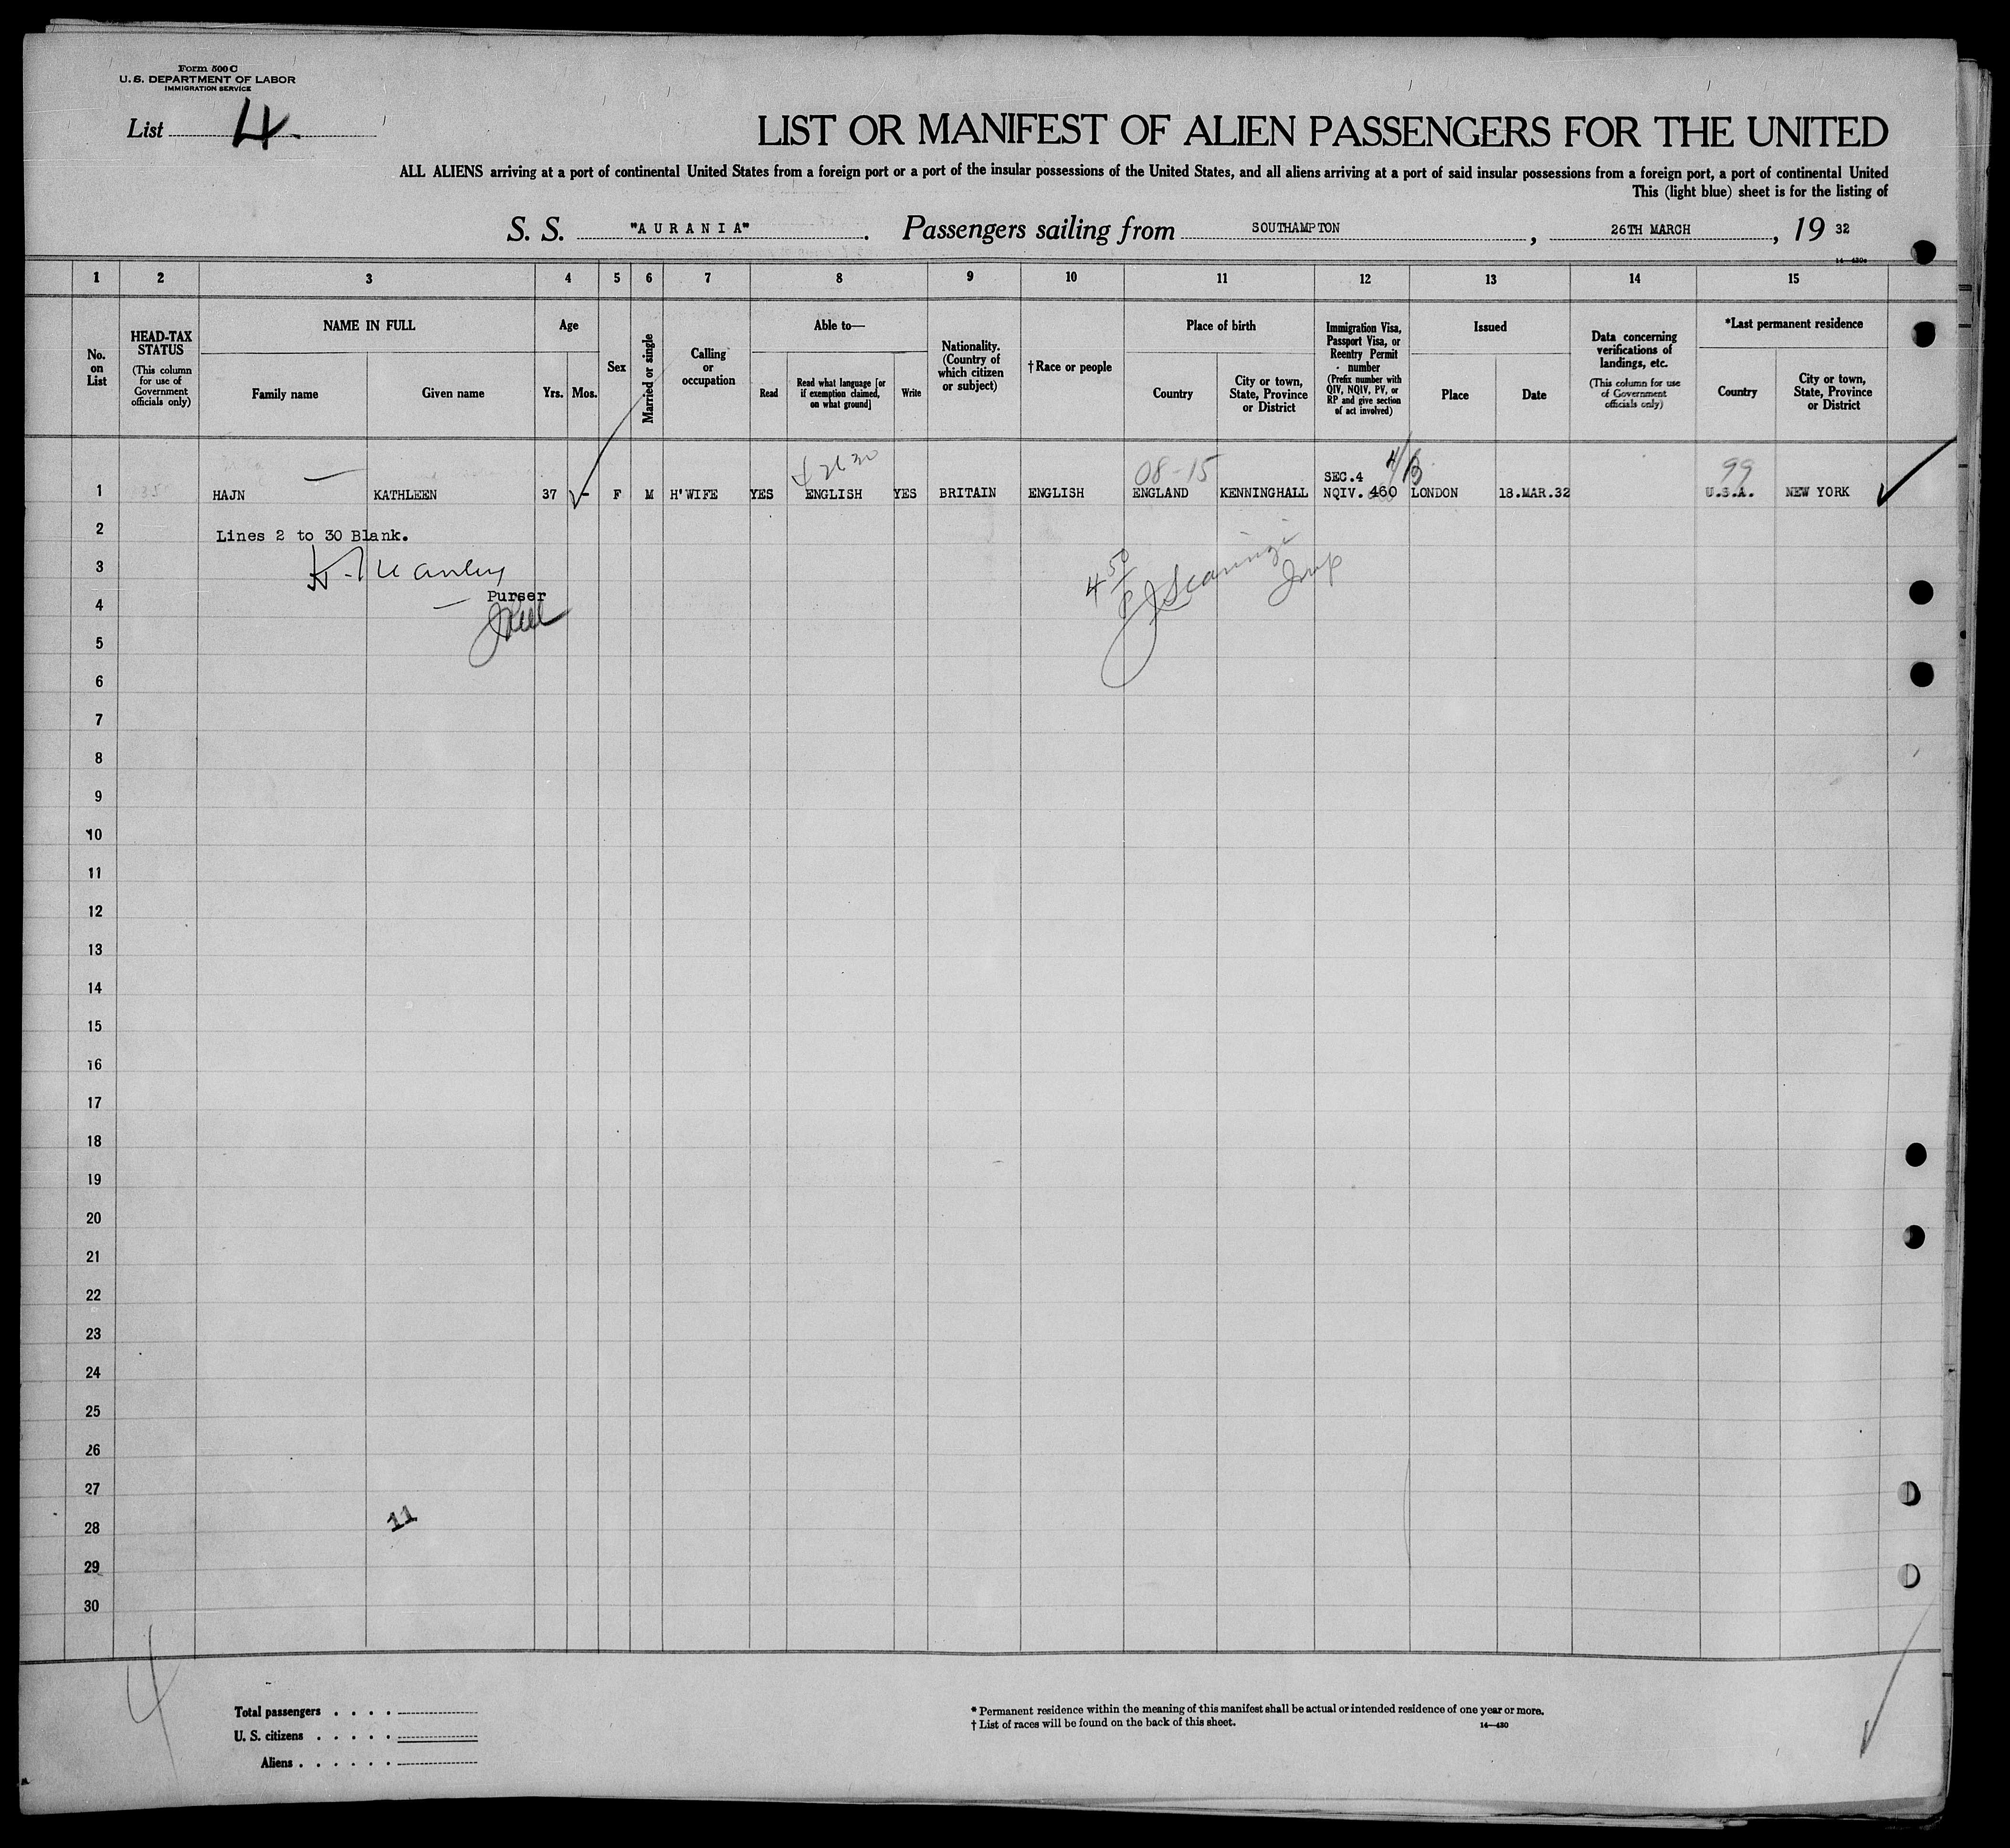 Form 500 C
U. S. DEPARTMENT OF LABOR
IMMIGRATION SERVICE
List 4.
LIST OR MANIFEST OF ALIEN PASSENGERS FOR THE UNITED
ALL ALIENS arriving at a port of continental United States from a foreign port or a port of the insular possessions of the United States, and all aliens arriving at a port of said insular possessions from a foreign port, a port of continental United
This (light blue) sheet is for the listing of
S. S. "AURANIA". Passengers sailing from SOUTHAMPTON, 26TH MARCH, 19 32
1 2 3 4 5 6 7 8 9 10 11 12 13 14 15
No. on List
HEAD-TAX STATUS
(This column for use of Government officials only)
NAME IN FULL
Family name
Given name
Age
Yrs. Mos.
Sex
Married or single
Calling or occupation
Able to—
Read
Read what language [or if exemption claimed, on what ground]
Write
Nationality. (Country of which citizen or subject)
†Race or people
Place of birth
Country
City or town, State, Province or District
Immigration Visa, Passport Visa, or Reentry Permit number
(Prefix number with QIV, NQIV, PV, or RP and give section of act involved)
Issued
Place
Date
Data concerning verifications of landings, etc.
(This column for use of Government officials only)
*Last permanent residence
Country
City or town, State, Province or District
08-15 SEC.4 99
1 HAJN KATHLEEN 37 - F M H'WIFE YES ENGLISH YES BRITAIN ENGLISH ENGLAND KENNINGHALL NQIV. 460 LONDON 18.MAR.32 U.S.A. NEW YORK
2 Lines 2 to 30 Blank.
3
4 Purser
5
6
7
8
9
10
11
12
13
14
15
16
17
18
19
20
21
22
23
24
25
26
27
28 11
29
30
4
Total passengers
U. S. citizens
Aliens
* Permanent residence within the meaning of this manifest shall be actual or intended residence of one year or more.
† List of races will be found on the back of this sheet.
14—430